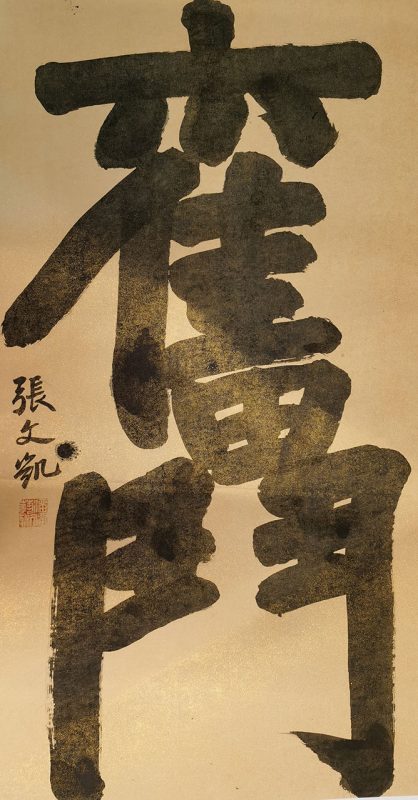 奮鬥
張文凱